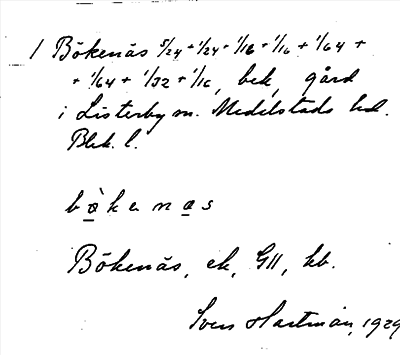 1 Bökenäs 5/24 + 1/24 + 1/18 + 1/16 + 1/64 +
+ 1/64 + 1/32 + 1/16, bek, gård
i Listerby sn. Medelstads hd.
Blek. l.
bö̀kenas
Bökenäs, ek, GII, kb.
Sven Hartman, 1929